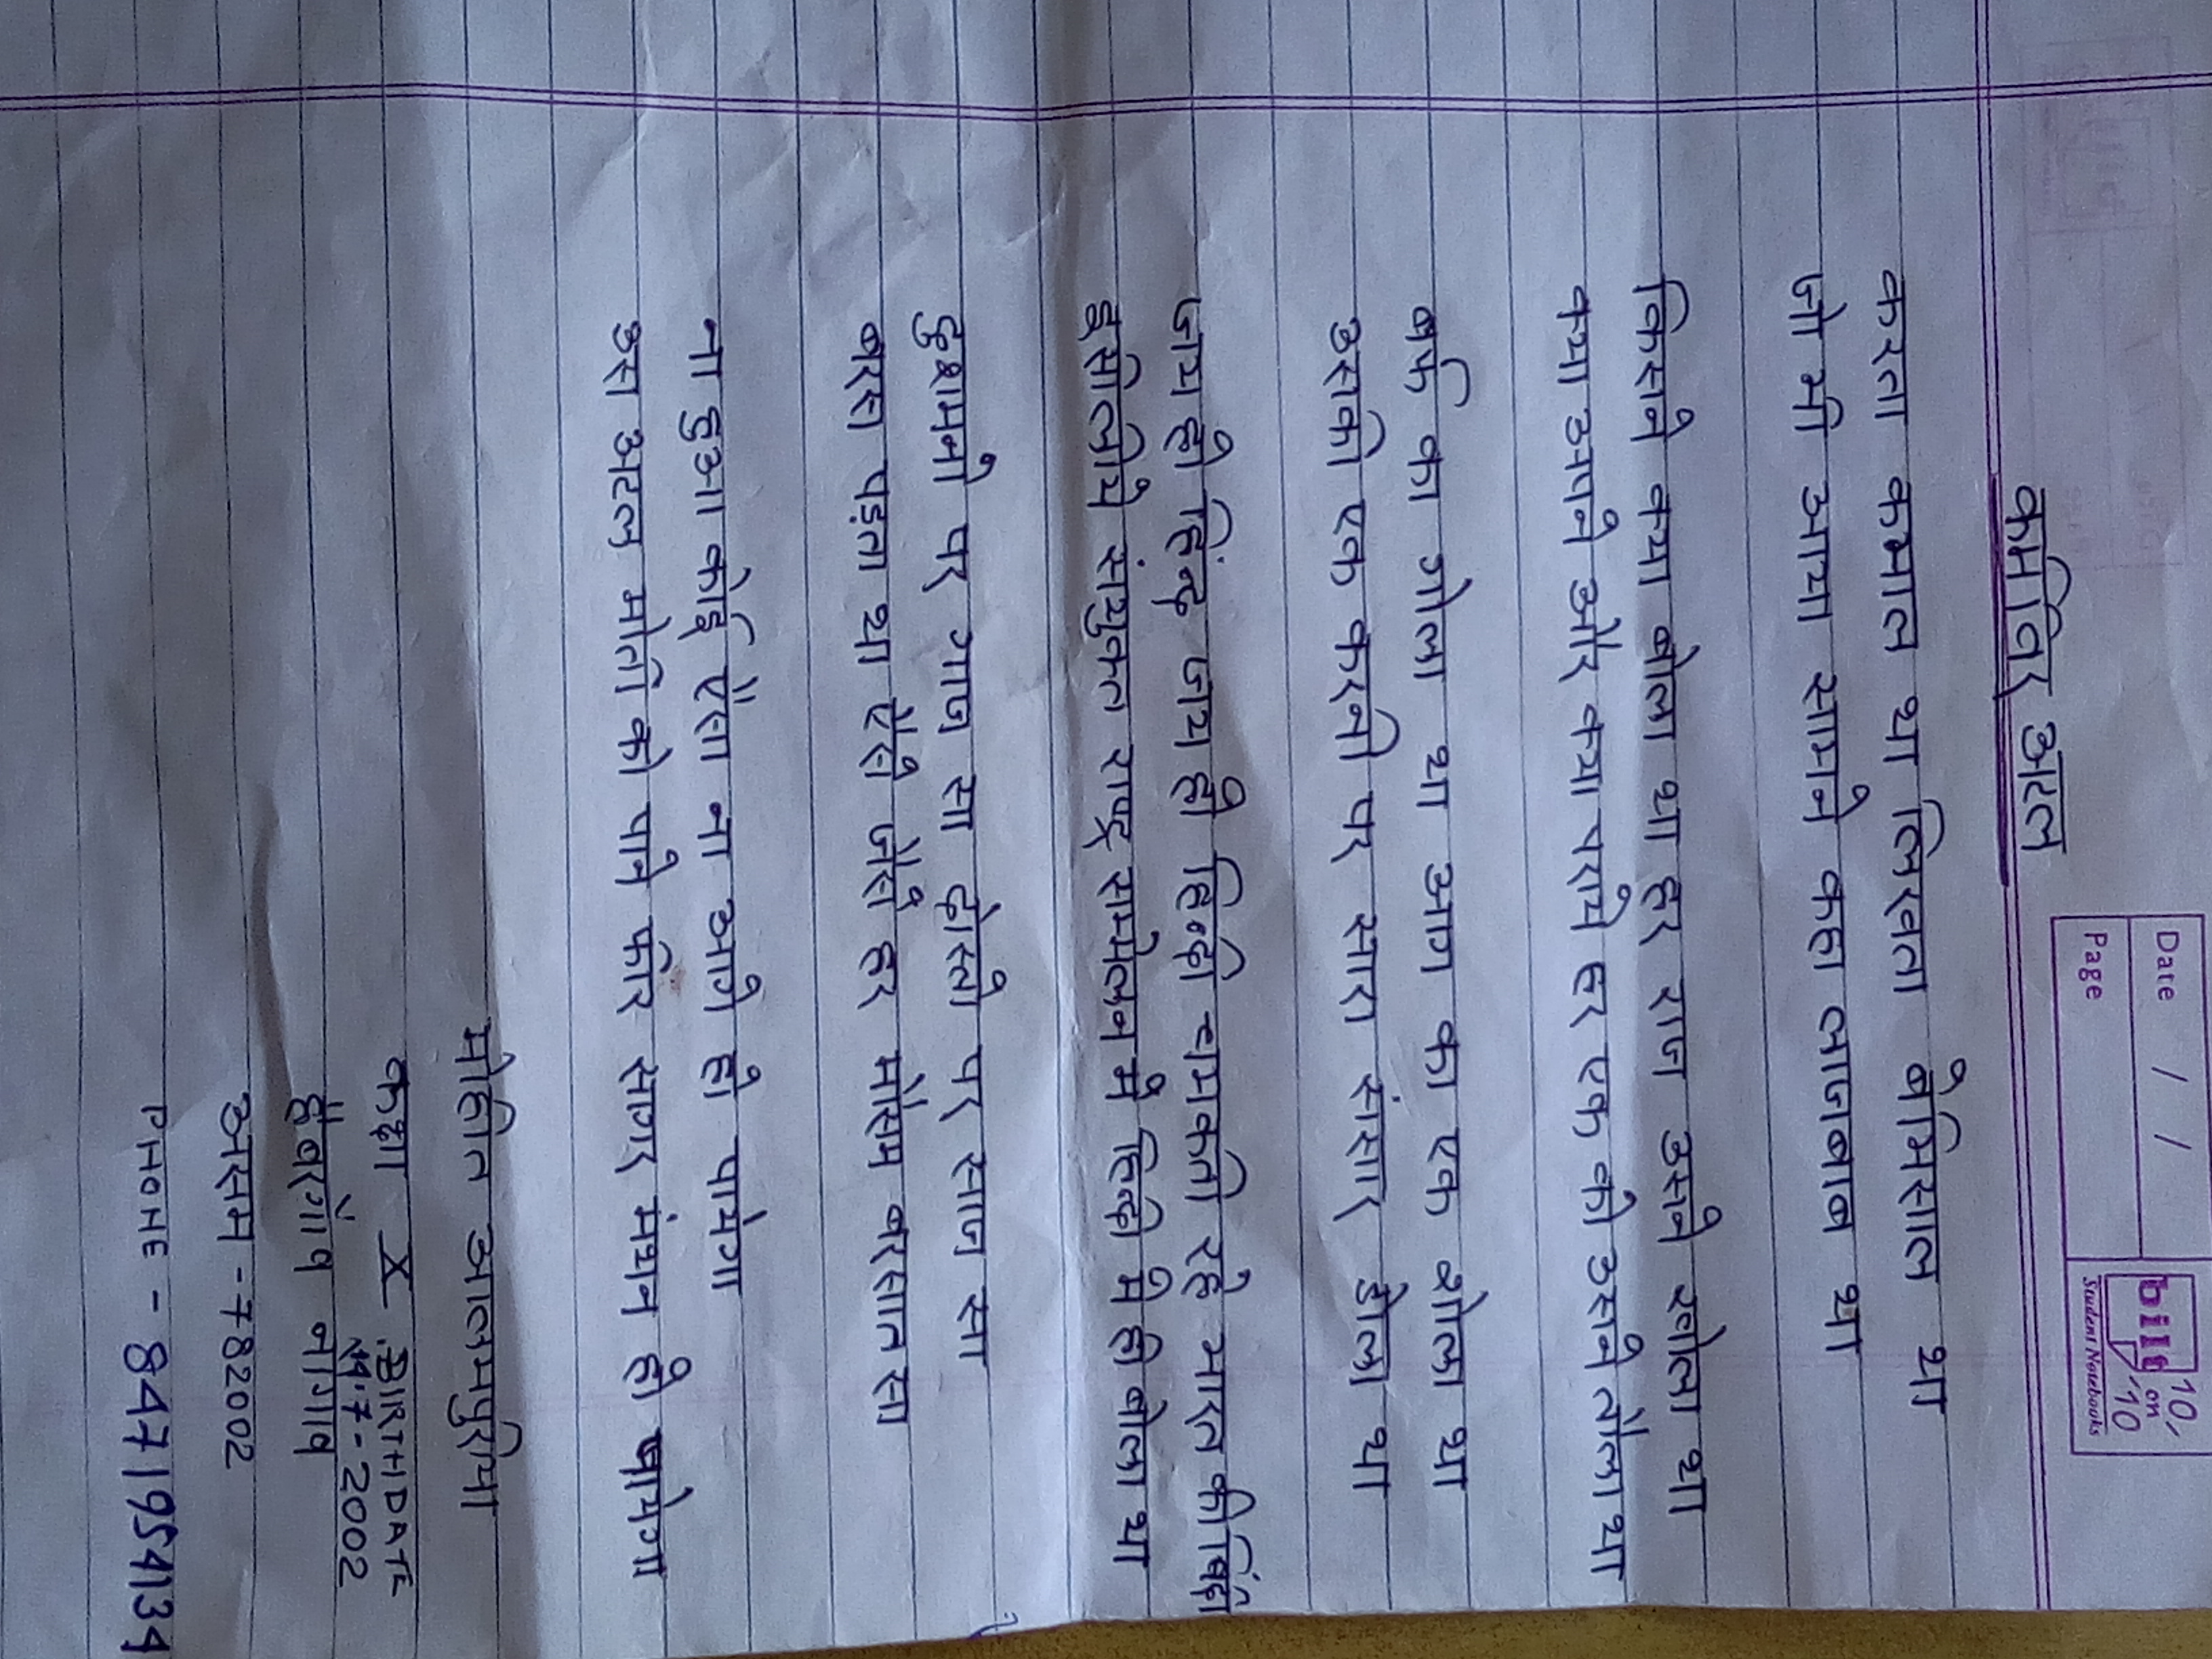 Date / /
Page
bilt
Student Notebooks
10/10
on
कर्मविर अटल
करता कमाल था लिखता बेमिसाल था
जो भी आया सामने कहा लाजबाब था
किसने क्या बोला था हर राज उसने खोला था
क्या अपने और क्या पराये हर एक को उसने तोला था
बर्फ का गोला था आग का एक शोला था
उसकी एक करनी पर सारा संसार डोला था
जय हो हिंद जय हो हिन्दी चमकती रहे भारत की बिंदी
इसीलीये संयुक्त राष्ट्र सम्मेलन में हिन्दी मे ही बोला था
दुशमनो पर गाज सा दोस्तो पर साज सा
बरस पड़ता था ऐसे जैसे हर मौसम बरसात सा
ना हुआ कोई ऐसा ना आगे हो पायेगा
उस अटल मोती को पाने फीर सागर मंथन हो जायेगा
मोहीत आलमपुरीया
कक्षा X BIRTHDATE
हैबरगाँव नागाव
असम - 782002
PHONE - 8471954134